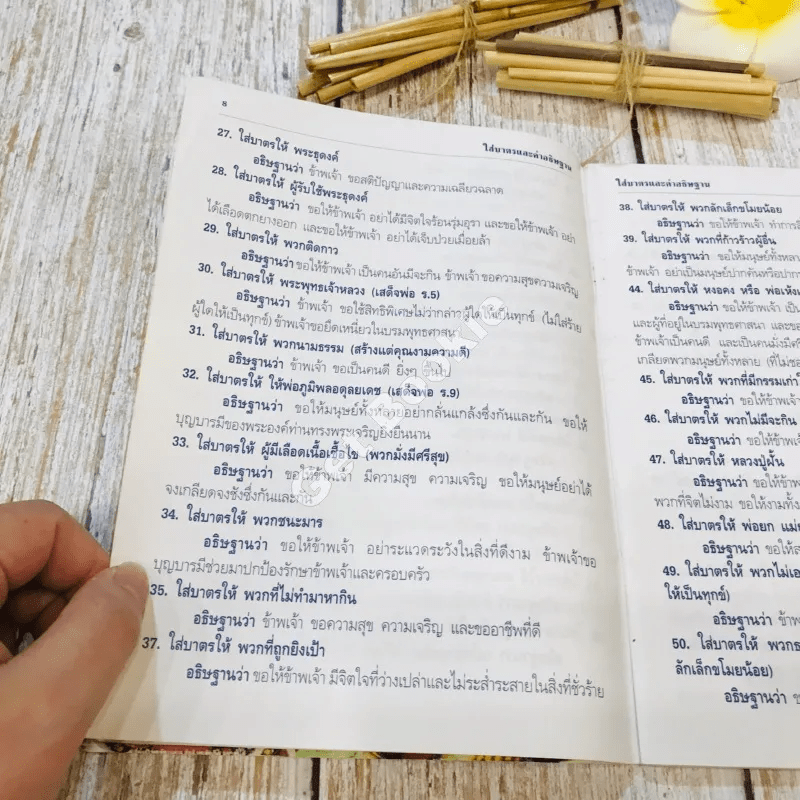 8
ใส่บาตรและคำอธิษฐาน
27. ใส่บาตรให้ พระธุดงค์
อธิษฐานว่า ข้าพเจ้า ขอสติปัญญาและความเฉลียวฉลาด
28. ใส่บาตรให้ ผู้รับใช้พระธุดงค์
อธิษฐานว่า ขอให้ข้าพเจ้า อย่าได้มีจิตใจร้อนรุ่มอุรา และขอให้ข้าพเจ้า อย่า
ได้เลือดตกยางออก และขอให้ข้าพเจ้า อย่าได้เจ็บป่วยเมื่อยล้า
29. ใส่บาตรให้ พวกติดกาว
อธิษฐานว่า ขอให้ข้าพเจ้า เป็นคนอันมีจะกิน ข้าพเจ้า ขอความสุขความเจริญ
30. ใส่บาตรให้ พระพุทธเจ้าหลวง (เสด็จพ่อ ร.5)
อธิษฐานว่า ข้าพเจ้า ขอใช้สิทธิพิเศษไม่ว่ากล่าว ผู้ใดให้เป็นทุกข์ (ไม่ใส่ร้าย
ผู้ใดให้เป็นทุกข์) ข้าพเจ้าขอยึดเหนี่ยวในบรมพุทธศาสนา
31. ใส่บาตรให้ พวกนามธรรม (สร้างแต่คุณงามความดี)
อธิษฐานว่า ข้าพเจ้า ขอเป็นคนดี ยิ่งๆ ขึ้นไป
32. ใส่บาตรให้ ให้พ่อภูมิพลอดุลยเดช (เสด็จพ่อ ร.9)
อธิษฐานว่า ขอให้มนุษย์ทั้งหลายอย่ากลั่นแกล้งซึ่งกันและกัน ขอให้
บุญบารมีของพระองค์ท่านทรงพระเจริญยิ่งยืนนาน
33. ใส่บาตรให้ ผู้มีเลือดเนื้อเชื้อไข (พวกมั่งมีศรีสุข)
อธิษฐานว่า ขอให้ข้าพเจ้า มีความสุข ความเจริญ ขอให้มนุษย์อย่าได้
จงเกลียดจงชังซึ่งกันและกัน
34. ใส่บาตรให้ พวกชนะมาร
อธิษฐานว่า ขอให้ข้าพเจ้า อย่าระแวดระวังในสิ่งที่ดีงาม ข้าพเจ้าขอ
บุญบารมีช่วยมาปกป้องรักษาข้าพเจ้าและครอบครัว
35. ใส่บาตรให้ พวกที่ไม่ทำมาหากิน
อธิษฐานว่า ข้าพเจ้า ขอความสุข ความเจริญ และขออาชีพที่ดี
37. ใส่บาตรให้ พวกที่ถูกยิงเป้า
อธิษฐานว่า ขอให้ข้าพเจ้า มีจิตใจที่ว่างเปล่าและไม่ระส่ำระสายในสิ่งที่ชั่วร้าย
ใส่บาตรและคำอธิษฐาน
38. ใส่บาตรให้ พวกลักเล็กขโมยน้อย
อธิษฐานว่า ขอให้ข้าพเจ้า ทำการ
39. ใส่บาตรให้ พวกที่ก้าวร้าวผู้อื่น
อธิษฐานว่า ขอให้มนุษย์ทั้งหลา
ข้าพเจ้า อย่าเป็นมนุษย์ปากคันหรือปาก
44. ใส่บาตรให้ หงอคง หรือ พ่อเห้ง
อธิษฐานว่า ขอให้ข้าพเจ้า เป็
และผู้ที่อยู่ในบรมพุทธศาสนา และขอ
ข้าพเจ้าเป็นคนดี และเป็นคนมั่งมีศรี
เกลียดพวกมนุษย์ทั้งหลาย (ที่ไม่ชอ
45. ใส่บาตรให้ พวกที่มีกรรมเก่า
อธิษฐานว่า ขอให้ข้าพเจ้า
46. ใส่บาตรให้ พวกไม่มีจะกิน
อธิษฐานว่า ขอให้ข้าพเจ้า
47. ใส่บาตรให้ หลวงปู่ฝั้น
อธิษฐานว่า ขอให้ข้าพเจ้
พวกที่จิตไม่งาม ขอให้งามทั้ง
48. ใส่บาตรให้ พ่อยก แม่
อธิษฐานว่า ขอให้ส
49. ใส่บาตรให้ พวกไม่เอ
ให้เป็นทุกข์)
อธิษฐานว่า ข้าพ
50. ใส่บาตรให้ พวก
ลักเล็กขโมยน้อย)
อธิษฐานว่า ข
Get Bookie